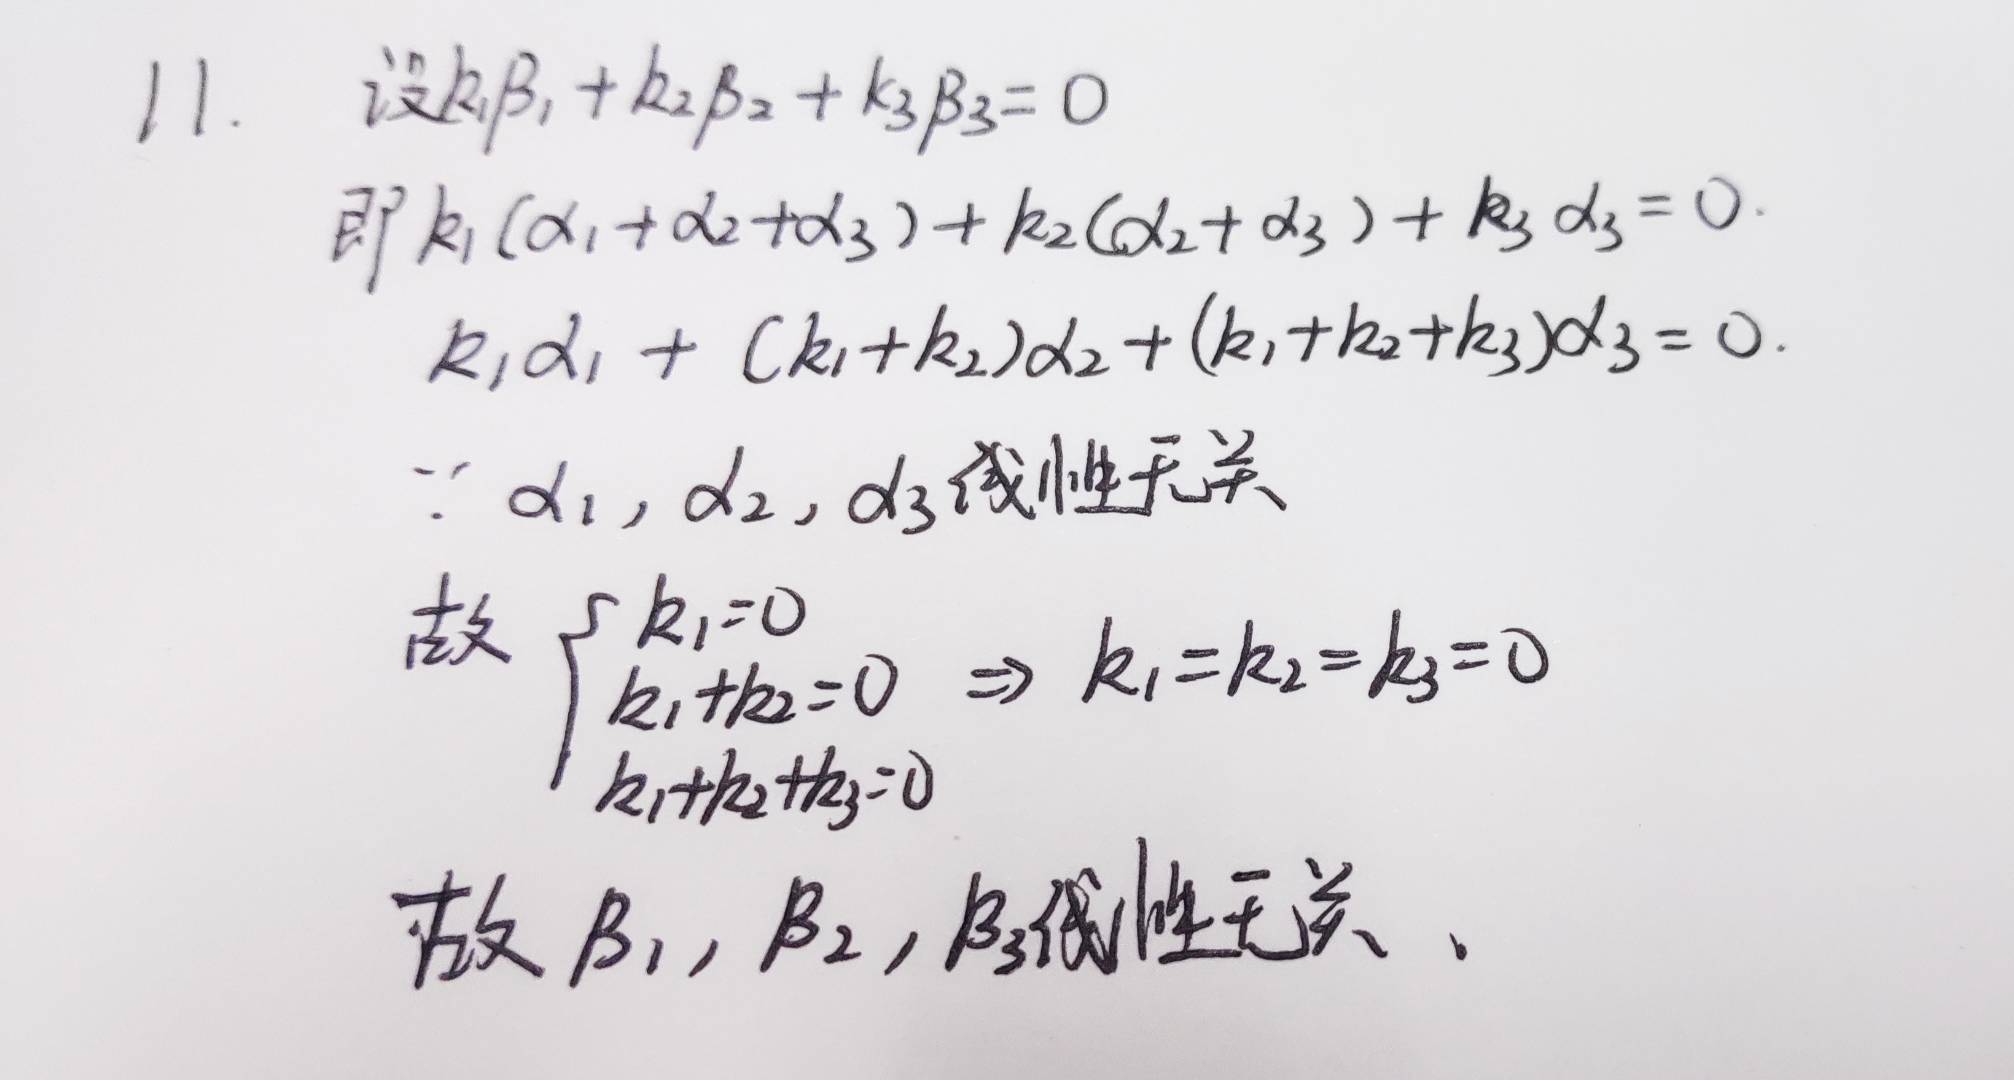 11. 设k₁β₁+k₂β₂+k₃β₃=0
即k₁(α₁+α₂+α₃)+k₂(α₂+α₃)+k₃α₃=0.
k₁α₁+(k₁+k₂)α₂+(k₁+k₂+k₃)α₃=0.
∵α₁,α₂,α₃线性无关
故{k₁=0
k₁+k₂=0 ⇒ k₁=k₂=k₃=0
k₁+k₂+k₃=0
故β₁,β₂,β₃线性无关、